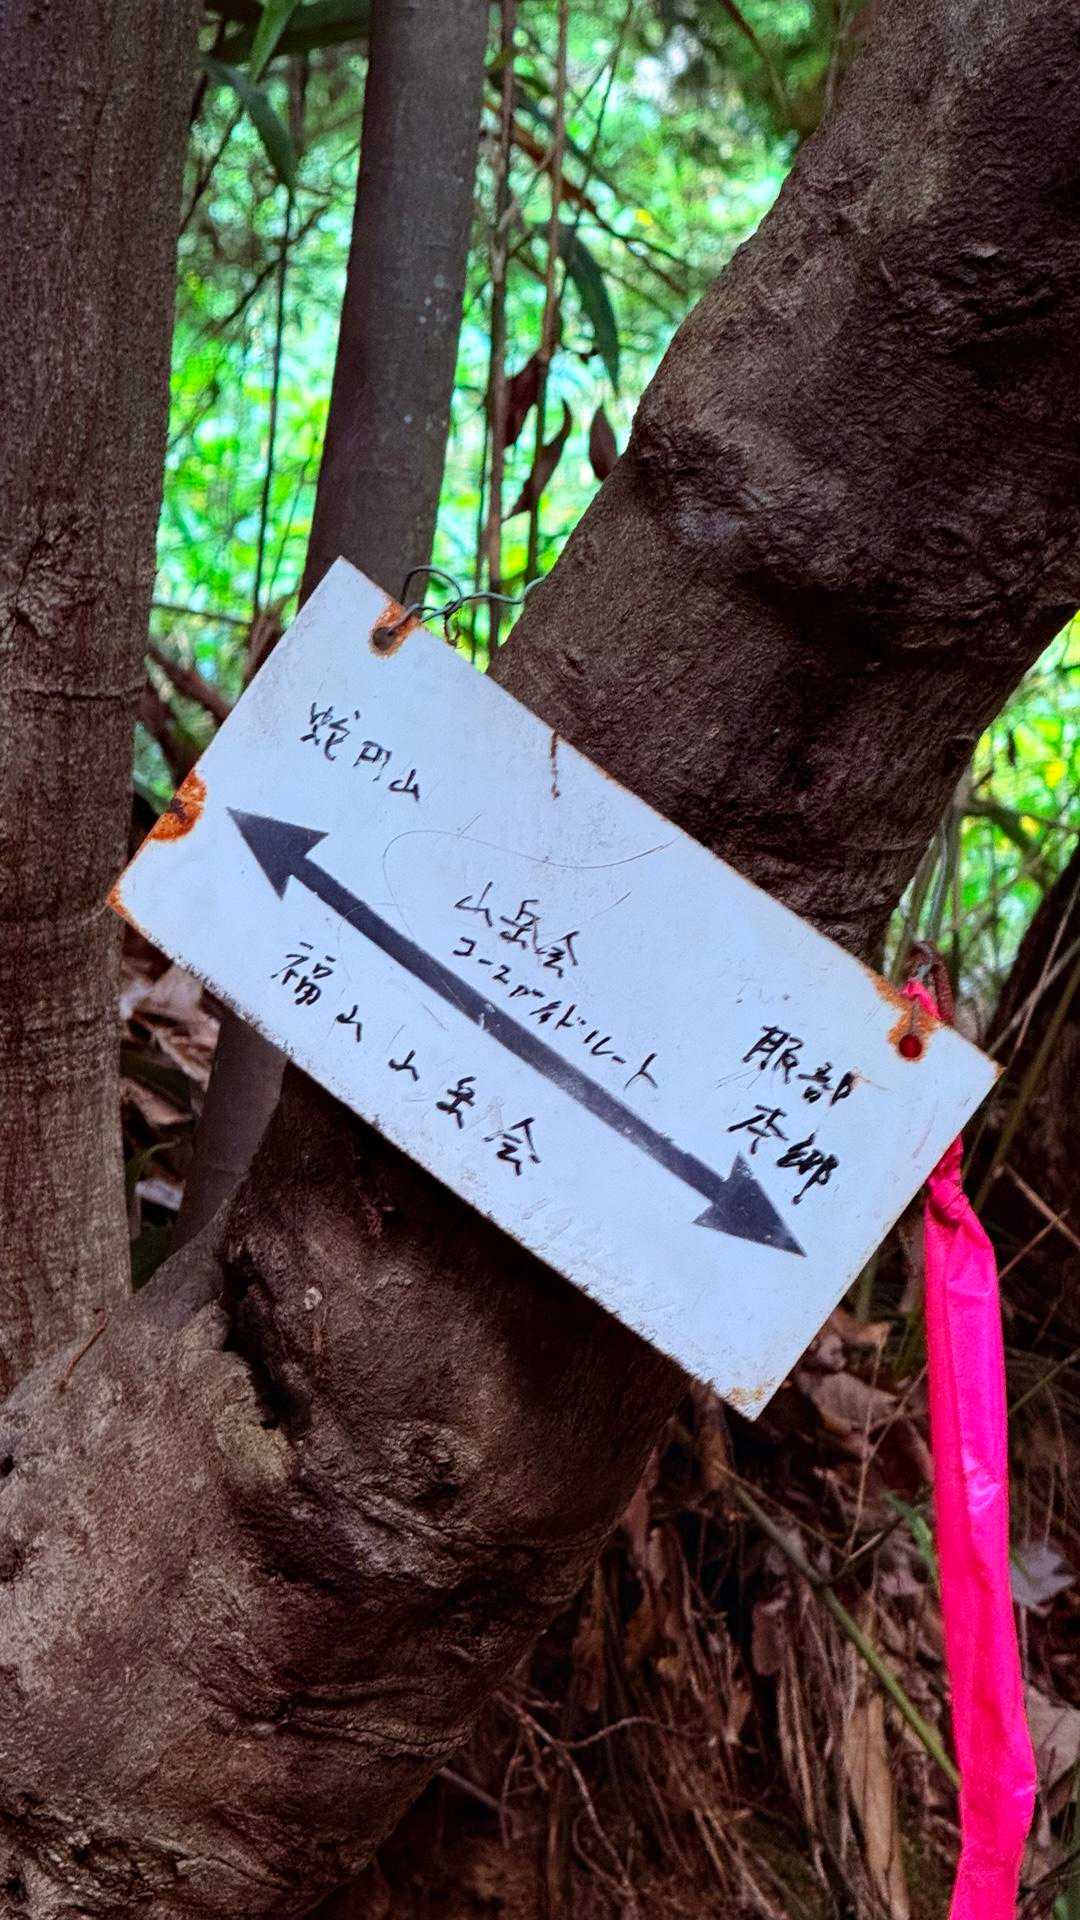 蛇円山
山岳会
コースガイドルート
服部
本郷
福山山岳会